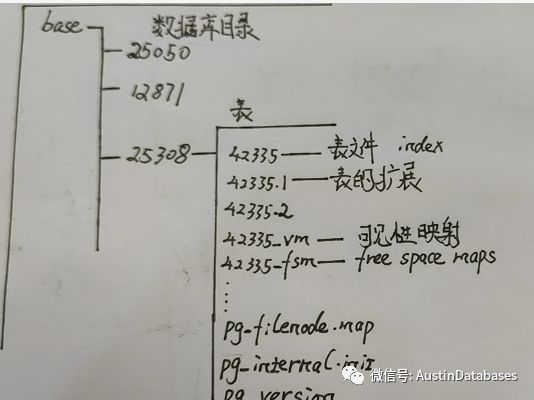 base 数据库目录
25050
12871
表
25308 42335 表文件 index
42335.1 表的扩展
42335.2
42335_vm 可见性映射
42335_fsm free space maps
pg_filenode.map
pg_internal.init
pg_version
微信号: AustinDatabases